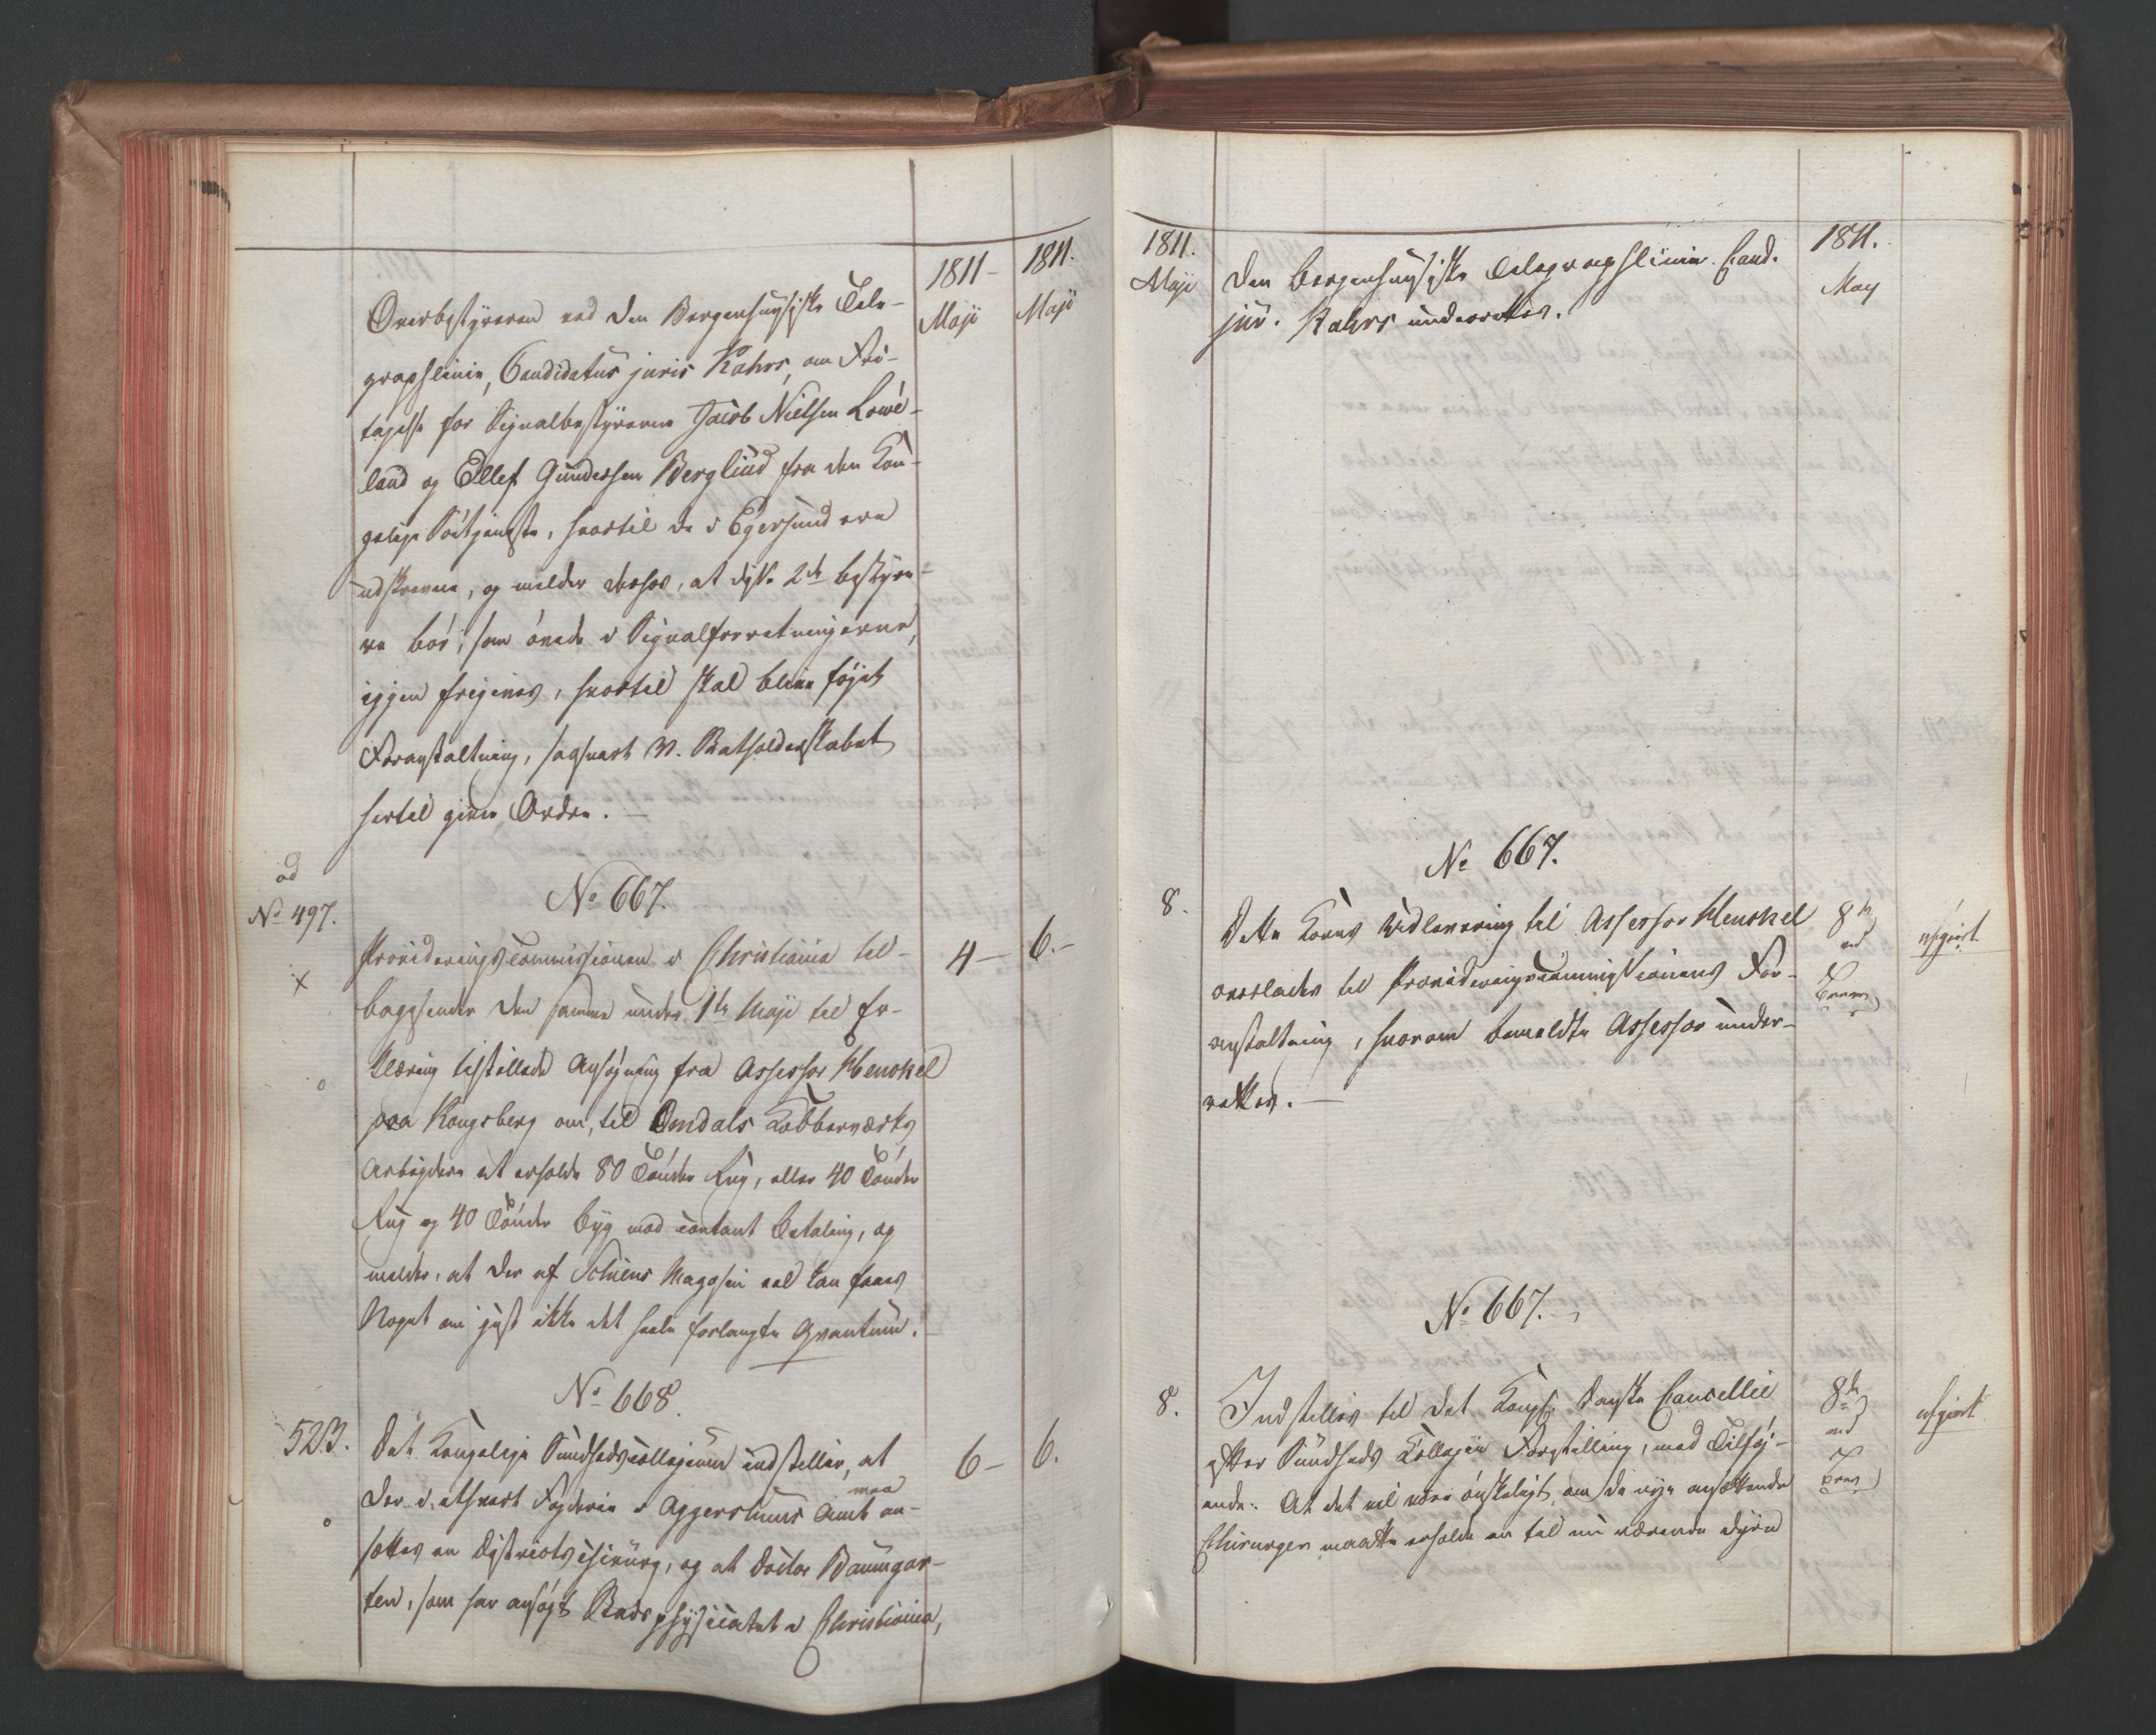 1811 - 1811.
Maji Maji
Overbestyreren ved den Bergenhuusiske Tele-
graphlinie, Candidatus juris Kahrs, om Fri-
tagelse for Signalbestyrerne Jacob Nielsen Lowe-
land og Ellef Gundersen Berglund fra den Kon-
gelige Sötjeneste, hvortil de i Egersund ere
udskrevne, og melder derhos, at disse 2de bestyre-
re bör, som övede i Signalforretningerne,
igjen frigives, hvortil skal blive föjet
Foranstaltning, saasnart V. Statholderskabet
hertil giver Ordre. —
ad
No 497.
No 667.
Provideringscommissionen i Christiania til- 4 — 6. -
bagesender den samme under 1ste Maji til Er-
klæring tilstillede Ansögning fra Assessor Henckel
paa Kongsberg om, til Omdals Kobberværks
Arbeydere at erholde 80 Tönder Rug, eller 40 Tönder
Rug og 40 Tönder Byg mod contant Betaling, og
melder, at der af Schiens Magasin vel kan faaes
Noget om just ikke det heele forlangte Qvantum.
No 668.
523.
Det Kongelige Sundhedscollegium indstiller, at 6 - 6.
der i ethvert Fogderie i Aggershuus Amt maa an-
sættes en Districtschirurg, og at Doctor Baumgar-
ten, som har ansögt Stadsphysicatet i Christiania,
1811. 1811.
Maji May
den Bergenhuusiske Telegraphlinie Cand.
jur. Kahrs underrettes.
No 667.
8.
Dette Korns Udlevering til Assessor Henckel 8de
overlades til Provideringscommissionens For- afgiort
anstaltning, hvorom bemeldte Assessor under-
rettes. —
No 667.
8.
Indstilles til det Kongl. Danske Cancellie 8de
efter Sundheds Collegii Forestilling, med Tilföj- afgiort
ende: At det vil være önskeligt, om de nye ansættende
Chirurger maatte erholde en til nu værende Dyre